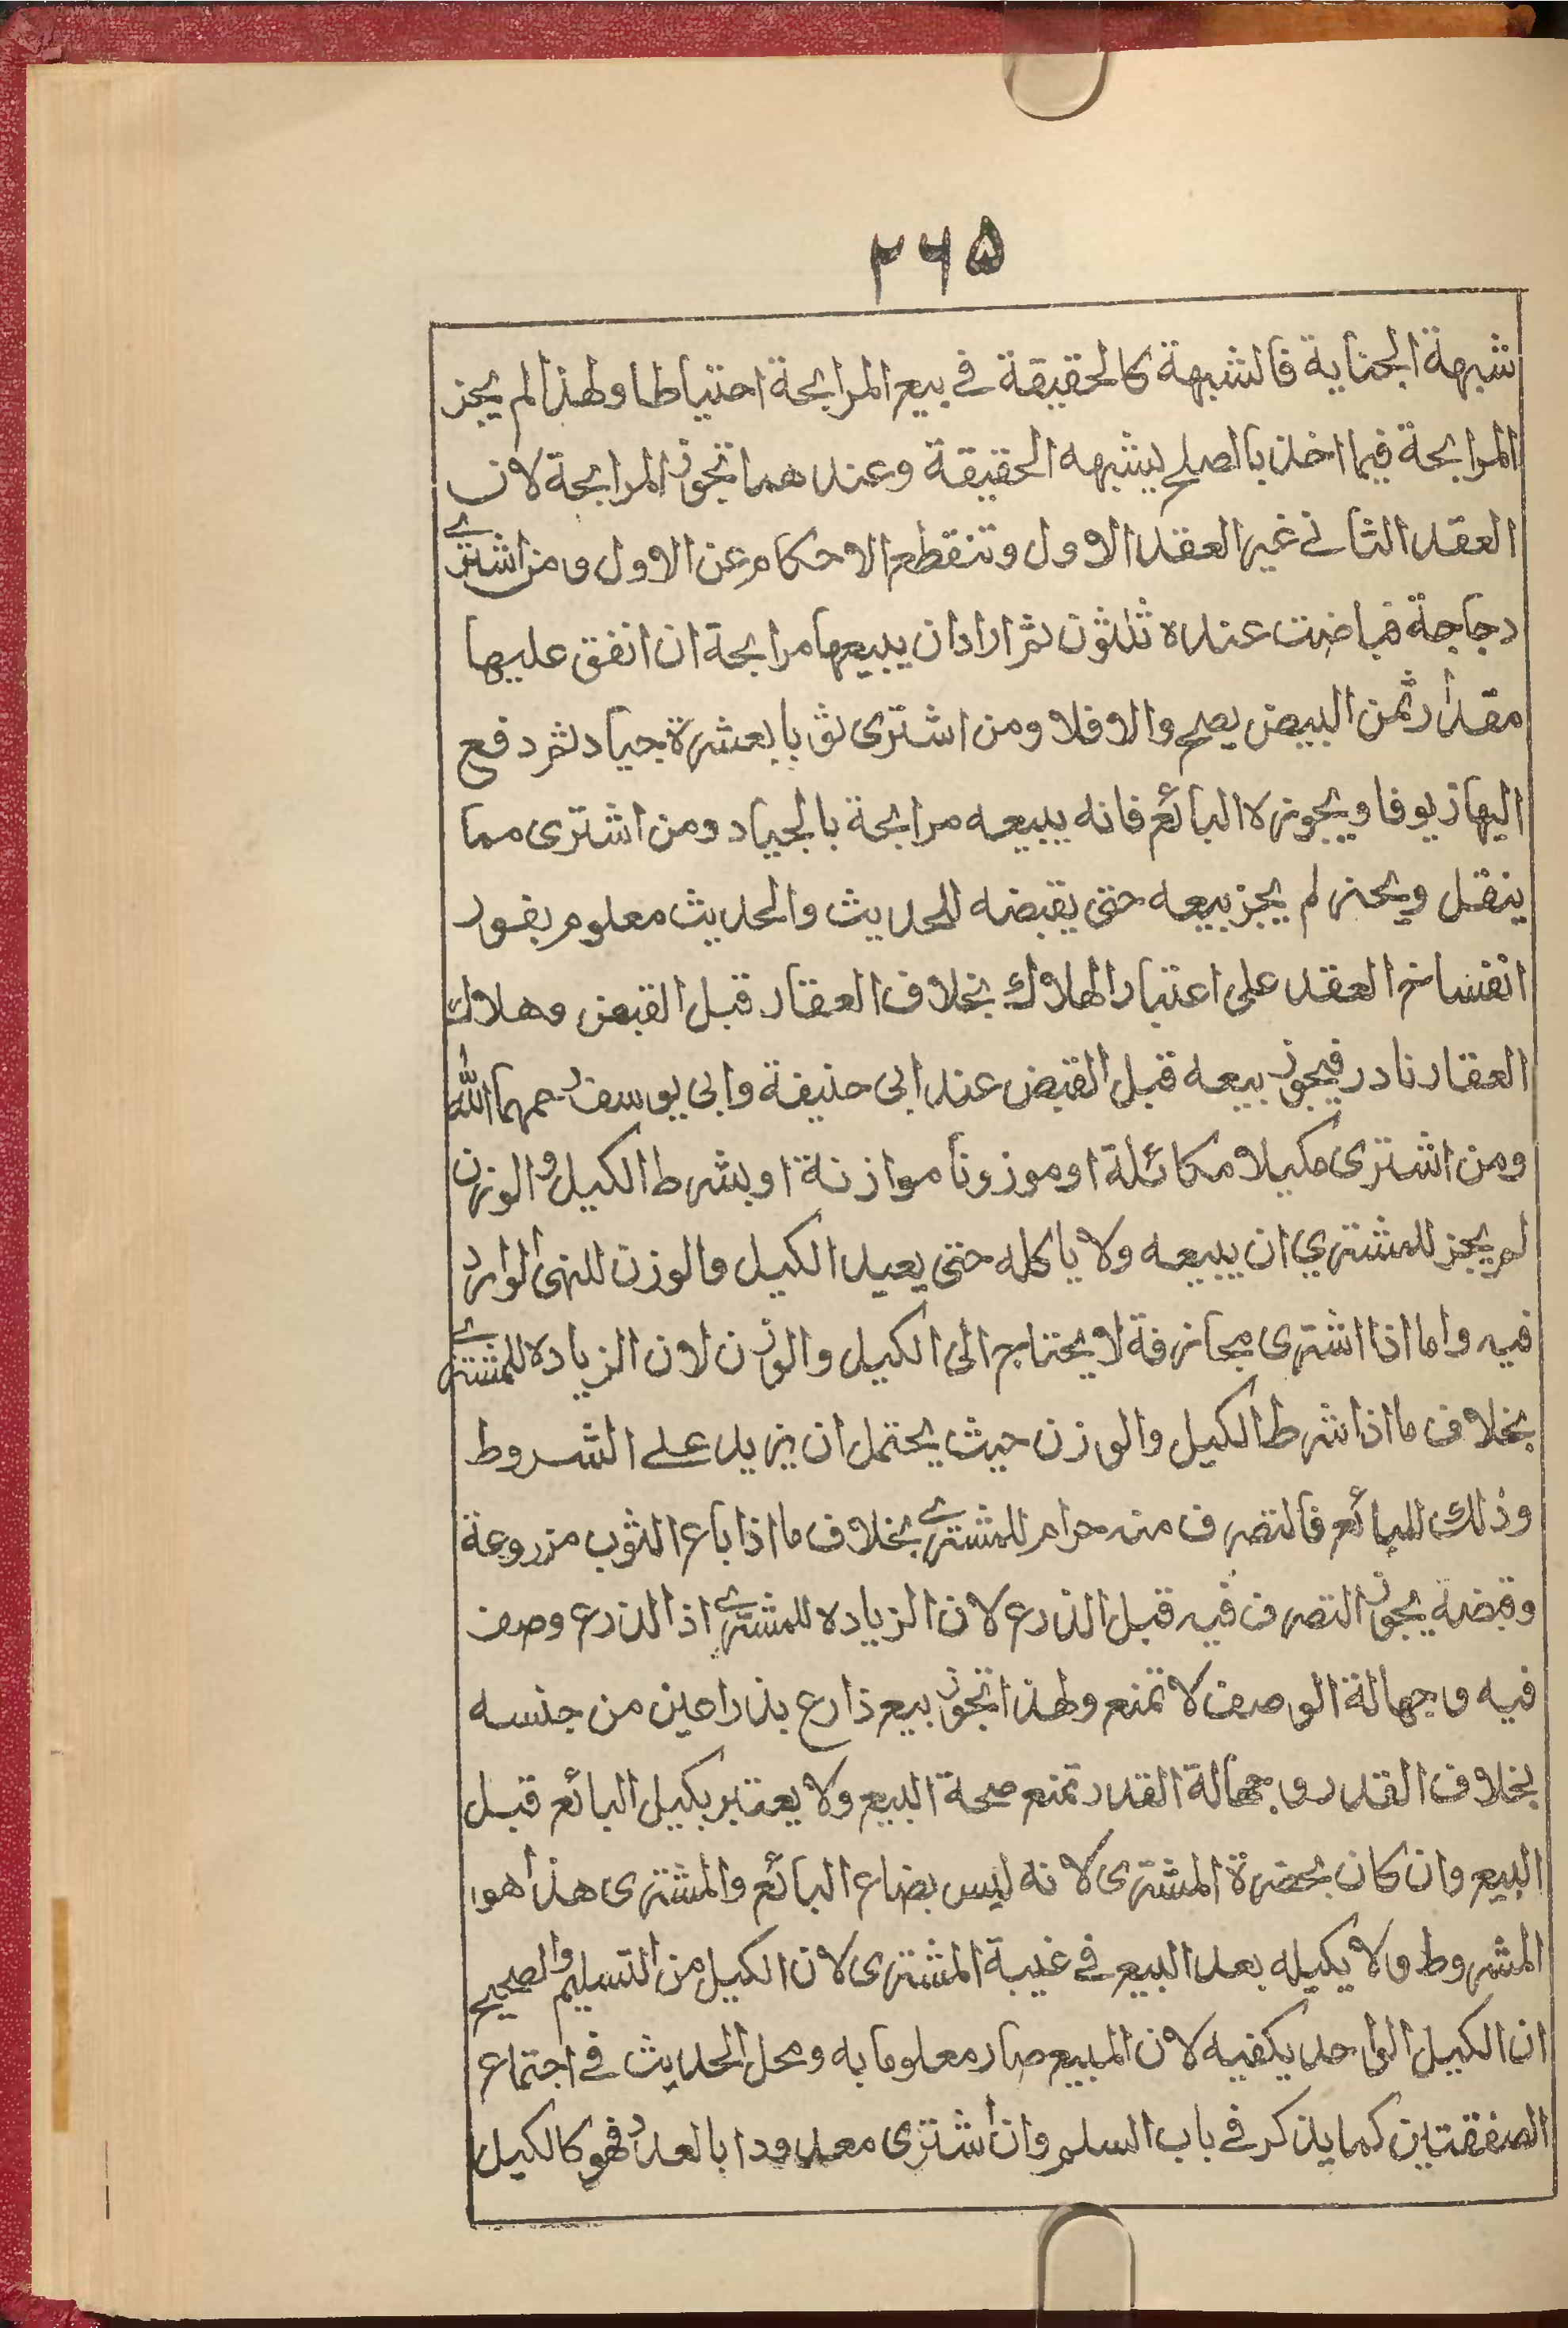 ۲۶۵
شبهة الجناية فالشبهة كالحقيقة في بيع المرابحة احتياطا ولهذا لم يجز
المرابحة فيما اخذ بالصلح ليشبهه الحقيقة وعندهما تجوز المرابحة لان
العقد الثاني غير العقد الاول وتنقطع الاحكام عن الاول ومن اشترى
دجاجة فباضت عنده ثلثون ثم اراد ان يبيعها مرابحة ان انفق عليها
مقدار ثمن البيض يصح والا فلا ومن اشترى ثوبا بعشرة جياد ثم دفع
اليها زيوفا ويجوزه البائع فانه يبيعه مرابحة بالجياد ومن اشترى مما
ينقل ويحنر لم يجز بيعه حتى يقبضه للحديث والحديث معلوم بغرر
انفساخ العقد على اعتبار الهلاك بخلاف العقار قبل القبض وهلاك
العقار نادر فيجوز بيعه قبل القبض عند ابى حنيفة وابى يوسف رحمهما الله
ومن اشترى مكيلا مكائلة او موزونا موازنة او بشرط الكيل والوزن
لم يجز للمشتري ان يبيعه ولا ياكله حتى يعيد الكيل والوزن للنهى الوارد
فيه واما اذا اشترى مجازفة لا يحتاج الى الكيل والوزن لان الزياده للمشترى
بخلاف ما اذا شرط الكيل والوزن حيث يحتمل ان يزيد على الشروط
وذلك للبائع فالتصرف منه حرام للمشترى بخلاف ما اذا باع الثوب مزروعة
وقبضه يجوز التصرف فيه قبل الذرع لان الزياده للمشترى اذا الذرع وصف
فيه وجهالة الوصف لا تمنع ولهذا تجوز بيع ذارع بذراعين من جنسه
بخلاف القدر وجهالة القدر تمنع صحة البيع ولا يعتبر بكيل البائع قبل
البيع وان كان بحضرة المشترى لانه ليس بضاع البائع والمشترى هذا هو
المشروط ولا يكيله بعد البيع في غيبة المشترى لان الكيل من التسليم والصحيح
ان الكيل الواحد يكفيه لان المبيع صار معلوما به ومحل الحديث في اجتماع
الصفقتين كما يذكر في باب السلم وان اشترى معدودا بالعدد فهو كالكيل